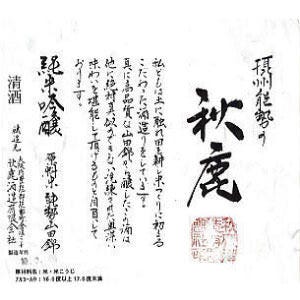 摂州能勢の
秋鹿
私どもは土に触れ田を耕し米づくりに初まる
こだわった酒造りをしています。
真に高品質な山田錦で醸したこの酒は
他に絶対真似のできない洗練された奥深い
味わいを堪能して頂けるものと自負して
おります。
純米吟醸
原料米 能勢山田錦
清酒
醸造元
秋鹿酒造有限会社
製造年月
原材料名：米・米こうじ
アルコール分：16.0度以上17.0度未満